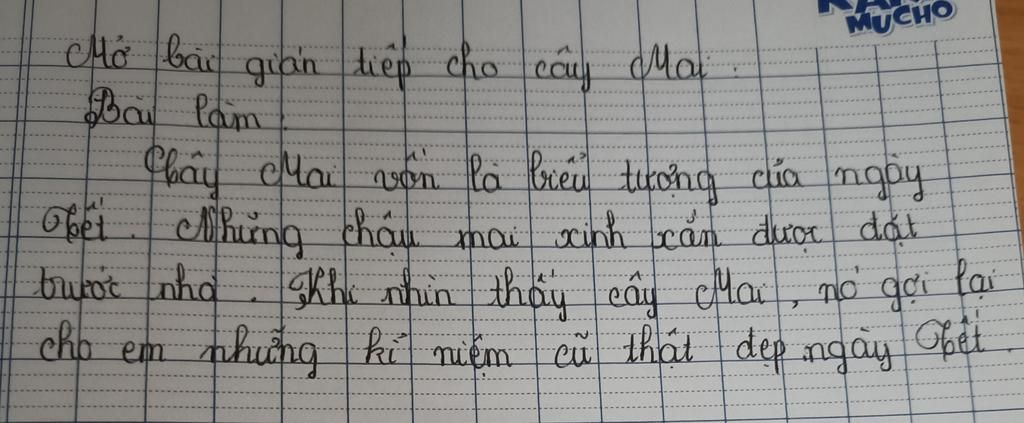 MUCHO
Mở bài gián tiếp cho cây Mai.
Bài làm
Cây Mai vốn là biểu tượng của ngày
Tết. Những chậu mai xinh xắn được đặt
trước nhà. Khi nhìn thấy cây Mai, nó gợi lại
cho em những kỉ niệm cũ thật đẹp ngày Tết.